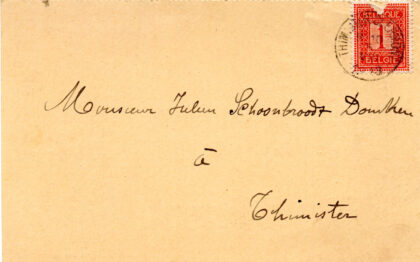 BELGIQUE
1
BELGIË
THIM
Monsieur Julien Schoonbroodt Domken
à
Thimister